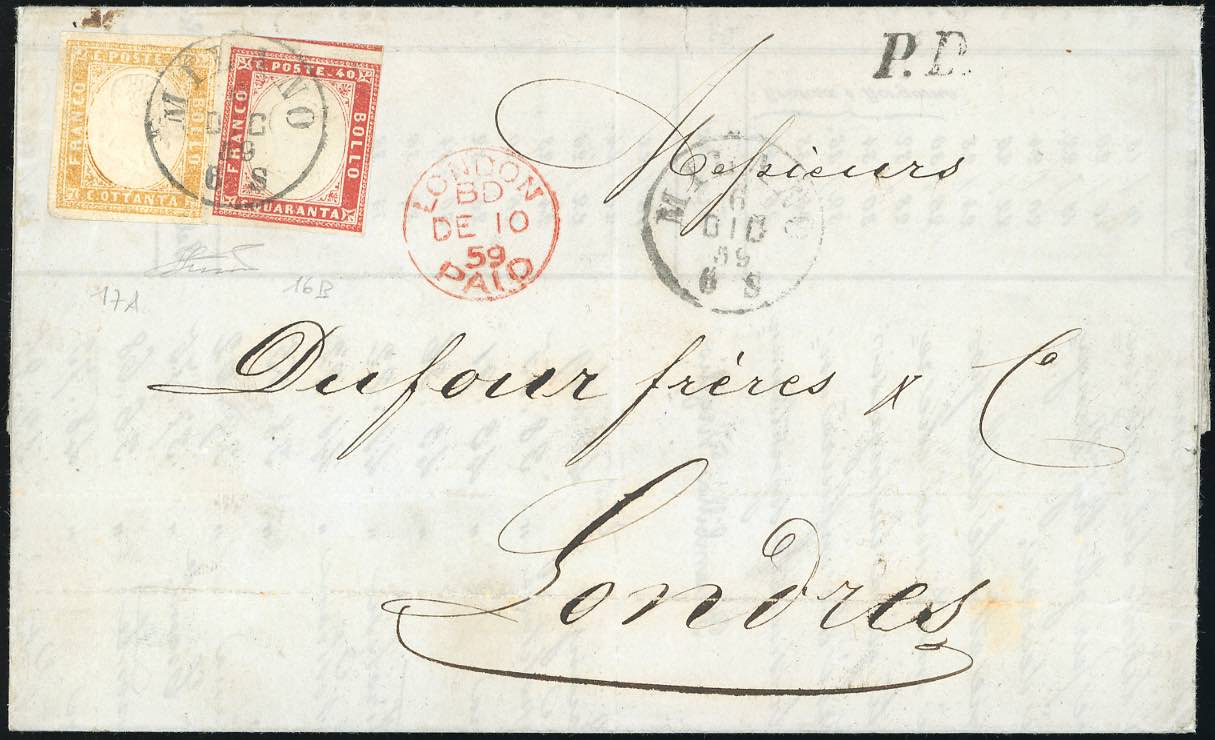 C. POSTE
FRANCO
BOLLO
C. OTTANTA
C. POSTE. 40
FRANCO
BOLLO
QUARANTA
MILANO
DIC
59
6 S
P. D.
LONDON
BD
DE 10
59
PAID
MILANO
DIC
59
6 S
Messieurs
17A
16B
Dufour frères & C
Londres